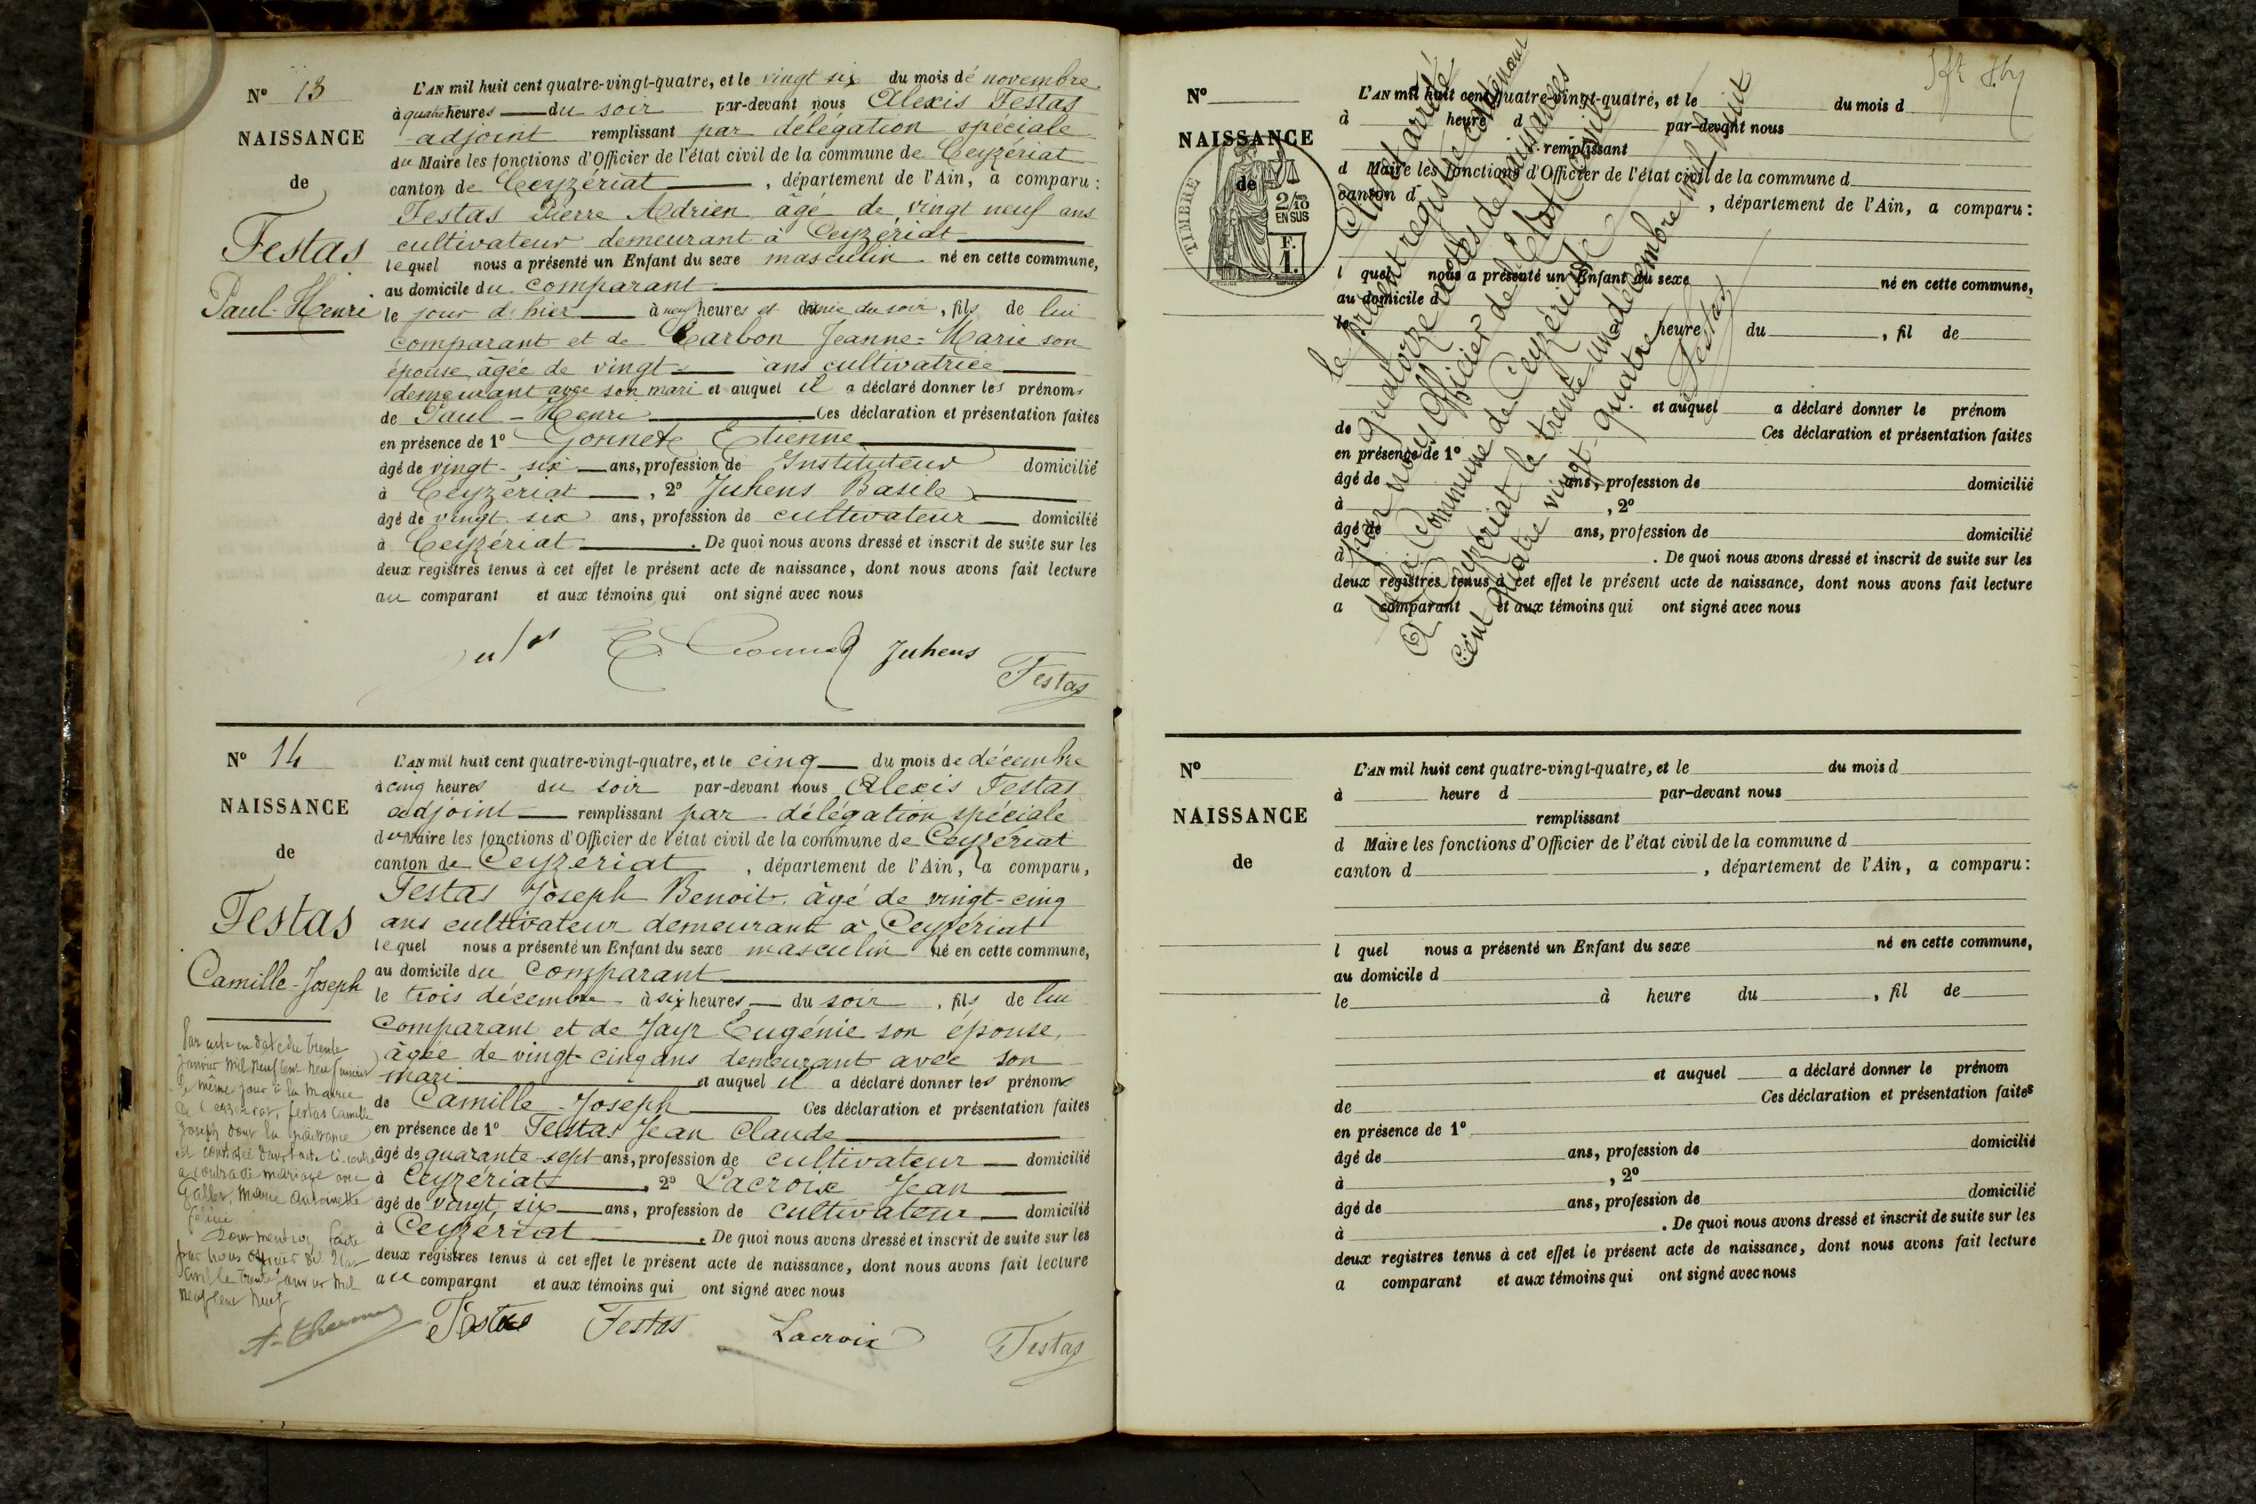 N° 13
NAISSANCE
de
Festas
Paul-Henri
L'AN mil huit cent quatre-vingt-quatre, et le vingt six du mois de novembre
à quatre heures du soir par-devant nous Alexis Festas
adjoint remplissant par délégation spéciale
du Maire les fonctions d'Officier de l'état civil de la commune de Ceyzériat
canton de Ceyzériat, département de l'Ain, a comparu :
Festas Pierre Adrien âgé de vingt neuf ans
cultivateur demeurant à Ceyzériat
lequel nous a présenté un Enfant du sexe masculin né en cette commune,
au domicile du comparant
le jour d'hier à neuf heures et demie du soir, fils de lui
comparant et de Carbon Jeanne-Marie son
épouse, âgée de vingt ans cultivatrice
demeurant avec son mari et auquel il a déclaré donner les prénoms
de Paul-Henri Ces déclaration et présentation faites
en présence de 1° Gonnet Etienne
âgé de vingt-six ans, profession de Instituteur domicilié
à Ceyzériat, 2° Juhens Basile
âgé de vingt six ans, profession de cultivateur domicilié
à Ceyzériat. De quoi nous avons dressé et inscrit de suite sur les
deux registres tenus à cet effet le présent acte de naissance, dont nous avons fait lecture
au comparant et aux témoins qui ont signé avec nous
Juhens
Festas
N° 14
NAISSANCE
de
Festas
Camille-Joseph
L'AN mil huit cent quatre-vingt-quatre, et le cinq du mois de décembre
à cinq heures du soir par-devant nous Alexis Festas
adjoint remplissant par délégation spéciale
du Maire les fonctions d'Officier de l'état civil de la commune de Ceyzériat
canton de Ceyzériat, département de l'Ain, a comparu,
Festas Joseph Benoit âgé de vingt-cinq
ans cultivateur demeurant à Ceyzériat
lequel nous a présenté un Enfant du sexe masculin né en cette commune,
au domicile du comparant
le trois décembre à six heures du soir, fils de lui
comparant et de Jayr Eugénie son épouse,
âgée de vingt-cinq ans demeurant avec son
mari et auquel il a déclaré donner les prénoms
de Camille-Joseph Ces déclaration et présentation faites
en présence de 1° Festas Jean Claude
âgé de quarante-sept ans, profession de cultivateur domicilié
à Ceyzériat, 2° Lacroix Jean
âgé de vingt six ans, profession de cultivateur domicilié
à Ceyzériat. De quoi nous avons dressé et inscrit de suite sur les
deux registres tenus à cet effet le présent acte de naissance, dont nous avons fait lecture
au comparant et aux témoins qui ont signé avec nous
Par acte en date du trente
Janvier mil neuf cent neuf inscrit
le même jour à la mairie
de Ceyzériat, Festas Camille
Joseph dont la naissance
est constatée dans l'acte ci-contre
a contracté mariage avec
Marie Antoinette
pour mention faite
par nous officier de l'Etat
civil le trente janvier mil
neuf cent neuf
Festas Festas Lacroix Festas
N°
NAISSANCE
de
TIMBRE
2/10
EN SUS
F.
1.
L'AN mil huit cent quatre-vingt-quatre, et le du mois d
à heure d par-devant nous
remplissant
d Maire les fonctions d'Officier de l'état civil de la commune d
canton d, département de l'Ain, a comparu :
l quel nous a présenté un Enfant du sexe né en cette commune,
au domicile d
le heure du, fil de
et auquel a déclaré donner le prénom
de Ces déclaration et présentation faites
en présence de 1°
âgé de ans, profession de domicilié
à, 2°
âgé de ans, profession de domicilié
à. De quoi nous avons dressé et inscrit de suite sur les
deux registres tenus à cet effet le présent acte de naissance, dont nous avons fait lecture
a comparant et aux témoins qui ont signé avec nous
Clos et arrêté
le présent registre contenant
quatorze actes de naissances
par nous Officier de l'Etat civil
de la Commune de Ceyzériat
A Ceyzériat le trente-un décembre mil huit
cent quatre vingt-quatre
Festas
N°
NAISSANCE
de
L'AN mil huit cent quatre-vingt-quatre, et le du mois d
à heure d par-devant nous
remplissant
d Maire les fonctions d'Officier de l'état civil de la commune d
canton d, département de l'Ain, a comparu :
l quel nous a présenté un Enfant du sexe né en cette commune,
au domicile d
le à heure du, fil de
et auquel a déclaré donner le prénom
de Ces déclaration et présentation faites
en présence de 1°
âgé de ans, profession de domicilié
à, 2°
âgé de ans, profession de domicilié
à. De quoi nous avons dressé et inscrit de suite sur les
deux registres tenus à cet effet le présent acte de naissance, dont nous avons fait lecture
a comparant et aux témoins qui ont signé avec nous